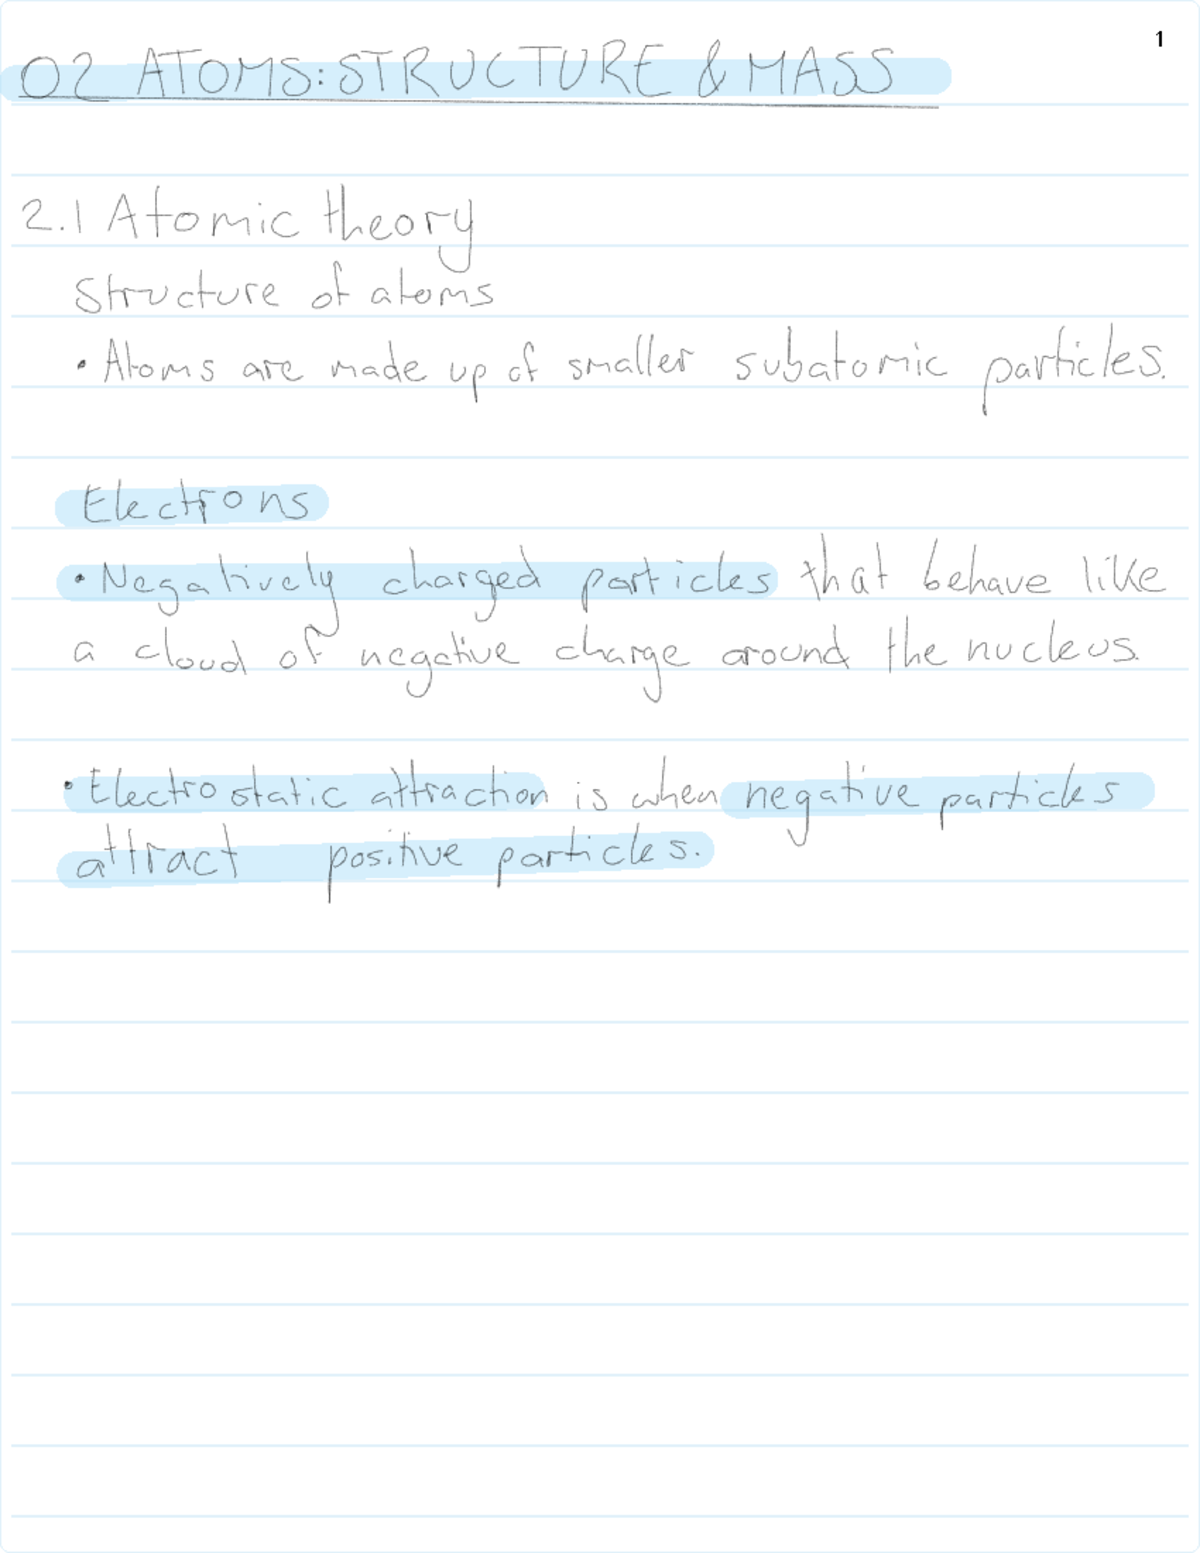 1
02 ATOMS: STRUCTURE & MASS
2.1 Atomic theory
Structure of atoms
• Atoms are made up of smaller subatomic particles.
Electrons
• Negatively charged particles that behave like
a cloud of negative charge around the nucleus.
• Electrostatic attraction is when negative particles
attract positive particles.